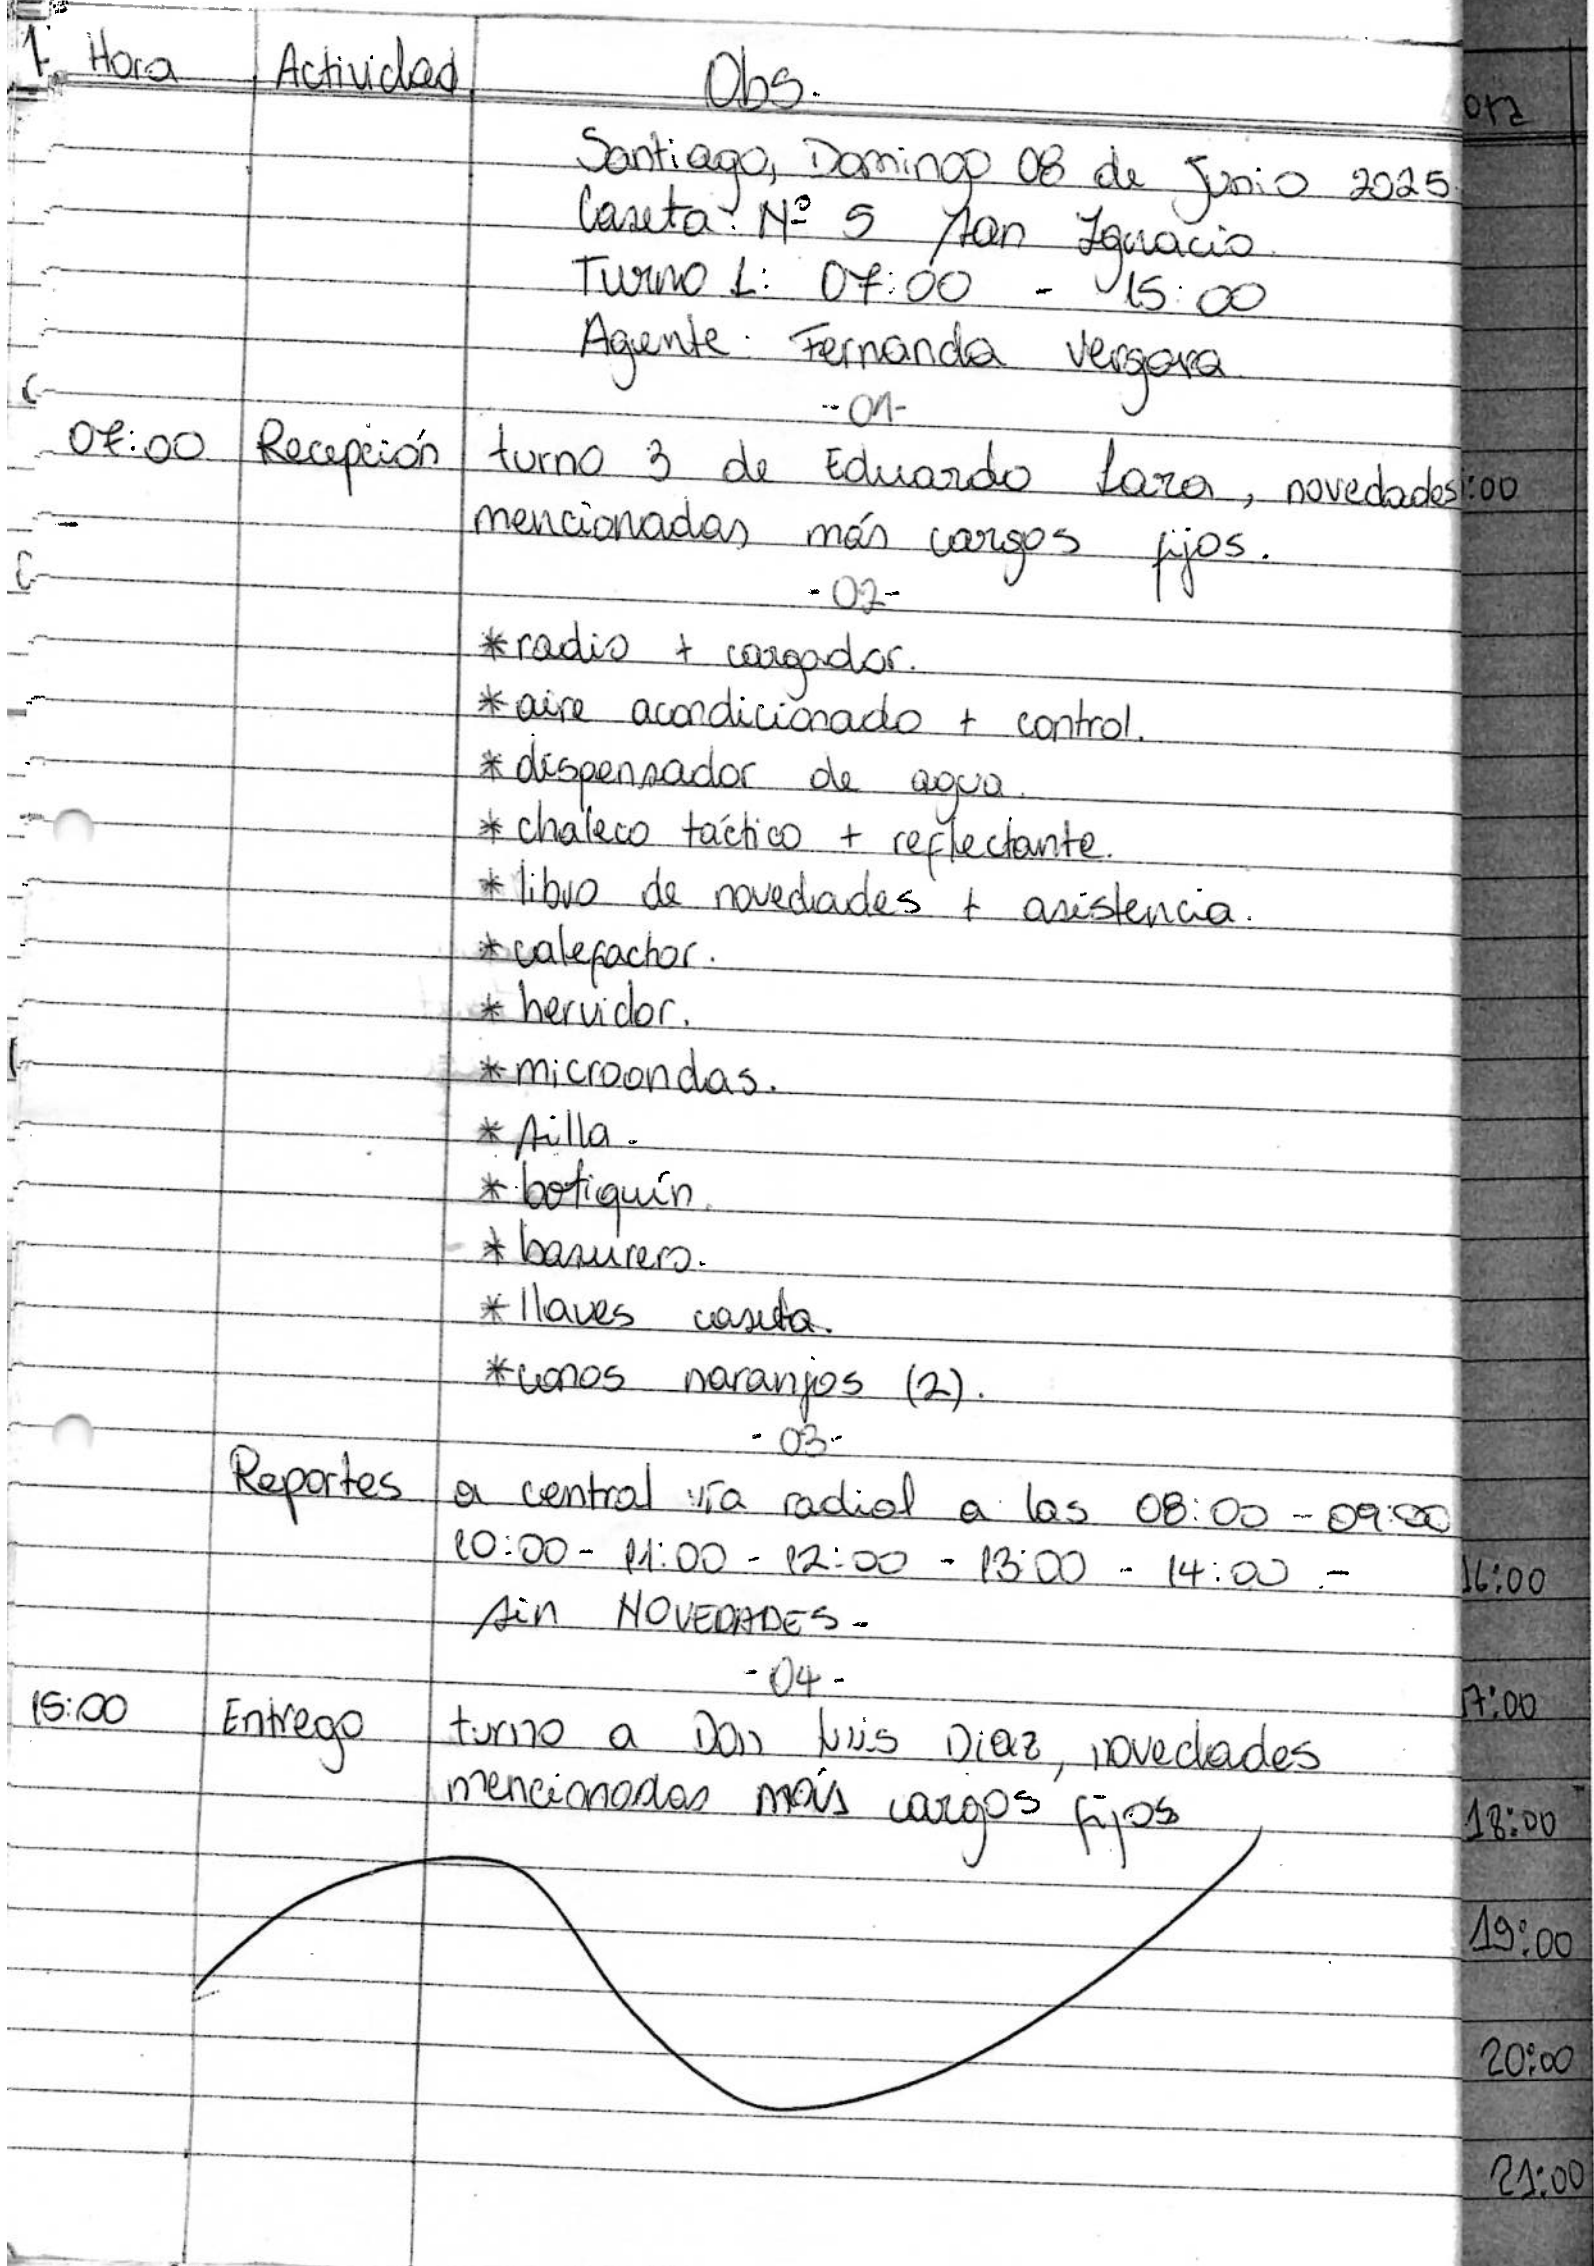 1. Hora Actividad Obs.
Santiago, Domingo 08 de Junio 2025.
Caseta: Nº 5 San Ignacio.
Turno 1: 07:00 - 15:00
Agente: Fernanda Vergara
-01-
07:00 Recepción turno 3 de Eduardo Lara, novedades
mencionadas más cargos fijos.
-02-
*radio + cargador.
*aire acondicionado + control.
*dispensador de agua.
*chaleco táctico + reflectante.
*libro de novedades + asistencia.
*calefactor.
*hervidor.
*microondas.
*silla.
*botiquín.
*basurero.
*llaves caseta.
*conos naranjos (2).
-03-
Reportes a central vía radial a las 08:00 - 09:00
10:00 - 11:00 - 12:00 - 13:00 - 14:00 -
sin NOVEDADES -
-04-
15:00 Entrego turno a Don Luis Diaz, novedades
mencionadas más cargos fijos
ora
:00
16:00
17:00
18:00
19:00
20:00
21:00